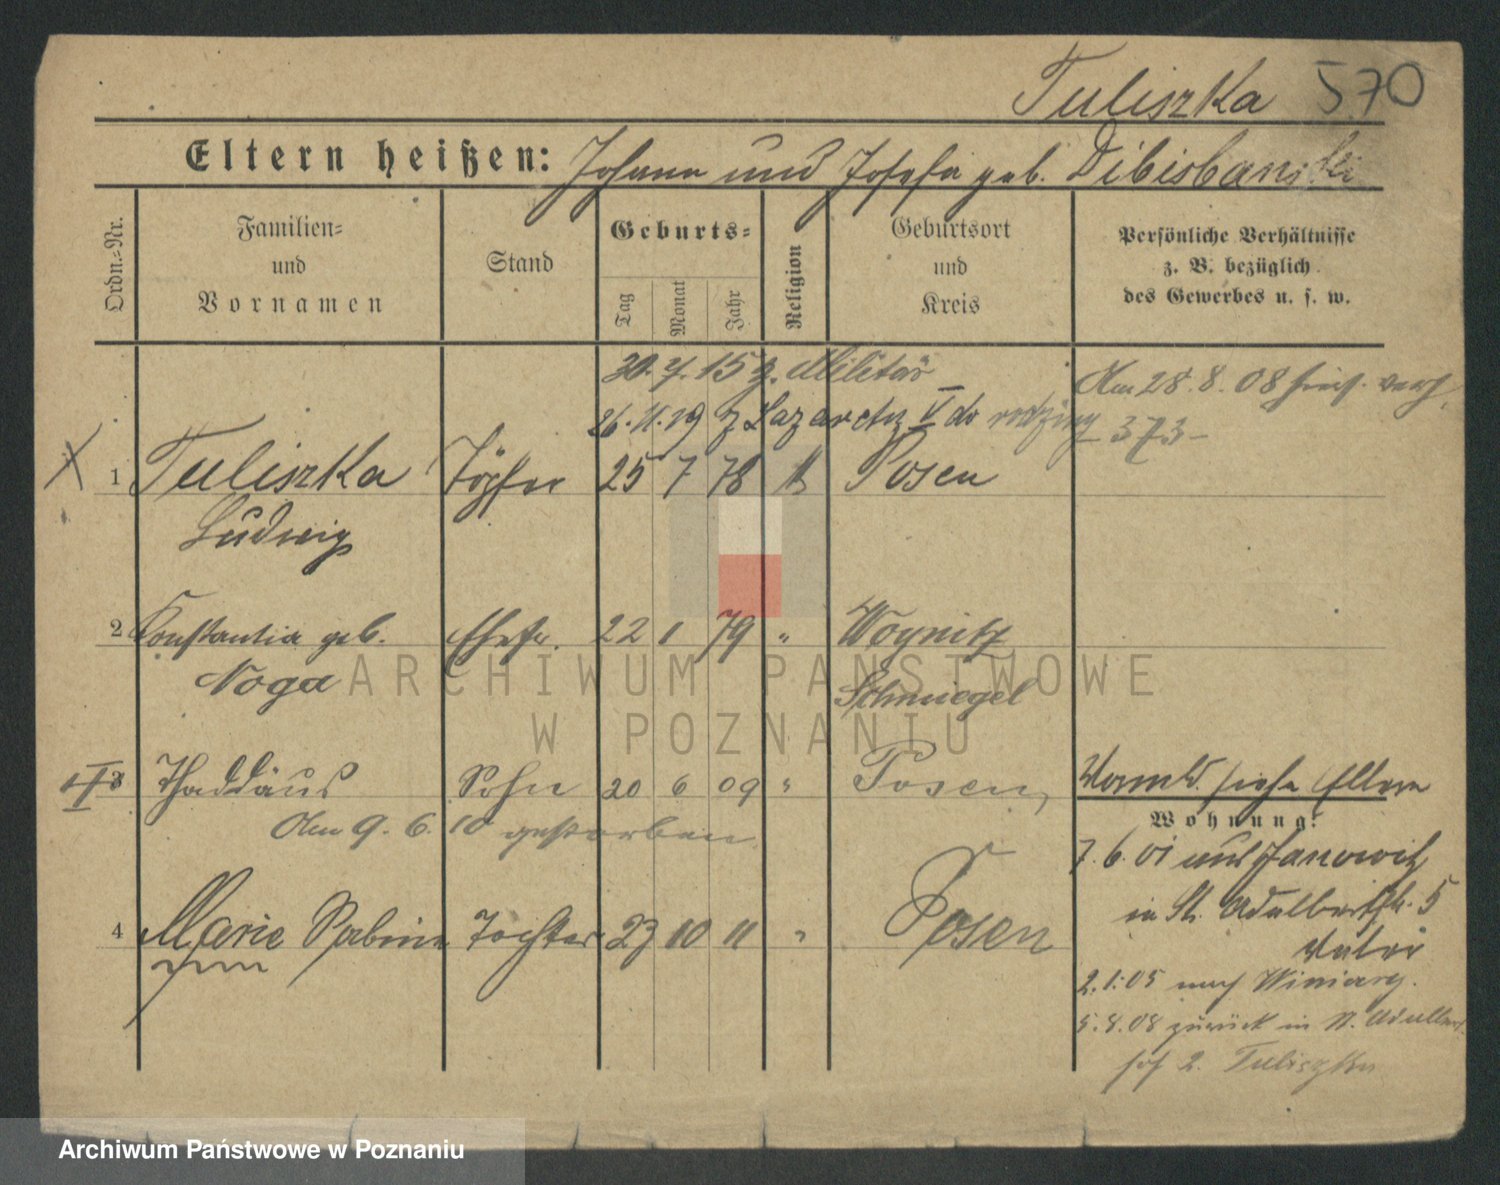 Tuliszka 570
Eltern heißen: Johann und Josefa geb. Dibisbanski
Ordn.-Nr.
Familien-
und
Vornamen
Stand
Geburts-
Tag
Monat
Jahr
Religion
Geburtsort
und
Kreis
Persönliche Verhältnisse
z. B. bezüglich
des Gewerbes u. s. w.
30. 7. 15 z. Militär
Am 28. 8. 08
26. 11. 19 z Lazaretu V do rodziny
373
1 Tuliszka Töpfer 25 7 78 k Posen
Ludwig
2 Konstantia geb. Ehefr. 22 1 79 " Woynitz
Noga
Schmiegel
3 Thaddäus Sohn 20 6 09 " Posen
Am 9. 6. 10 gestorben
4 Marie Sabina Tochter 23 10 11 " Posen
Vormld. siehe Eltern
Wohnung:
7. 6. 01 aus Janowitz
in St. Adalbertstr. 5
Vater
2. 1. 05 nach Winiary.
5. 8. 08 zurück in St. Adalbert
2. Tuliszka
ARCHIWUM PAŃSTWOWE
W POZNANIU
Archiwum Państwowe w Poznaniu